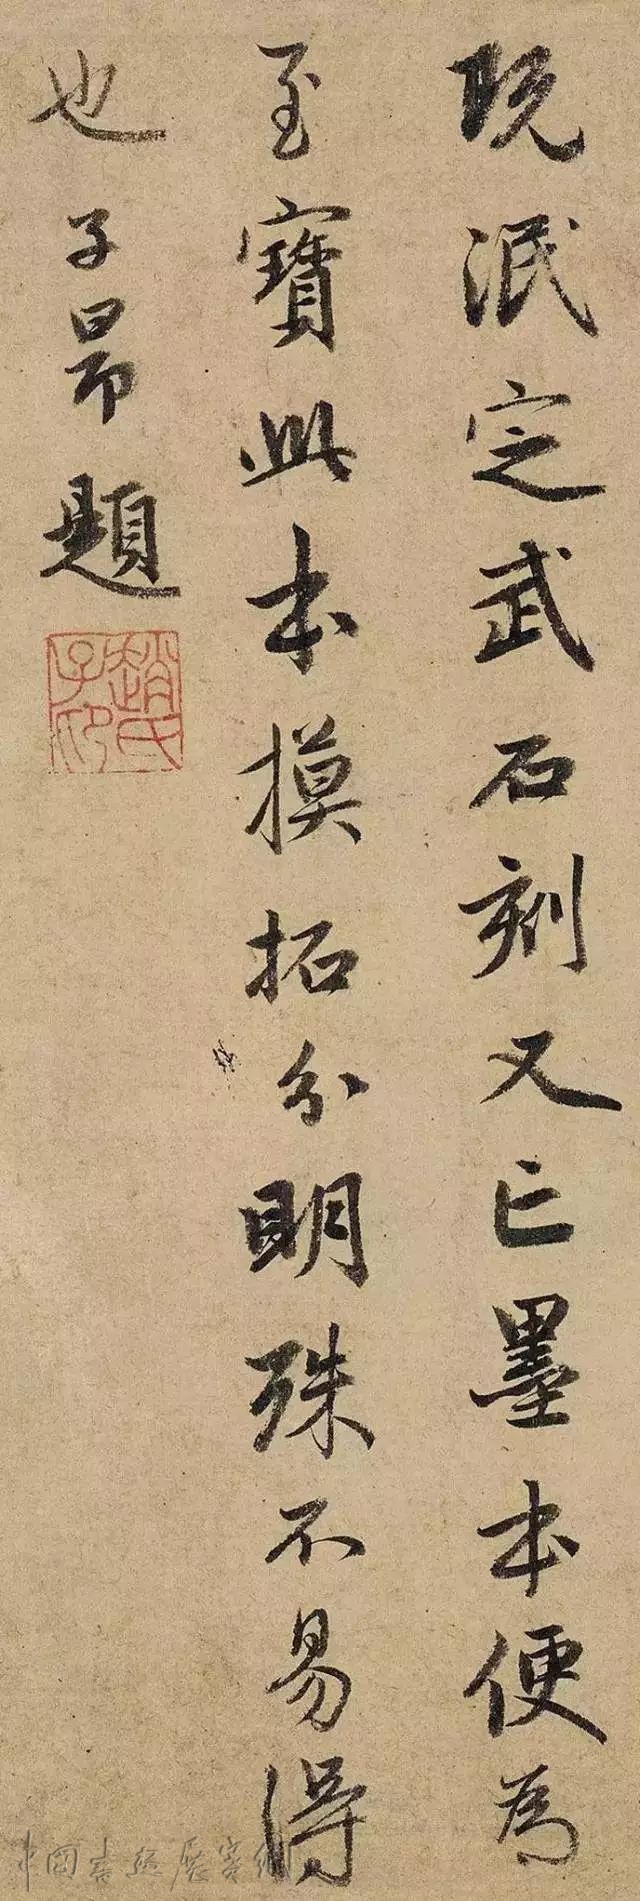 既泯定武石刻又亡墨本便為
至寶此本摸拓分明殊不易得
也子昂題
趙氏子印
中國書法展賽網